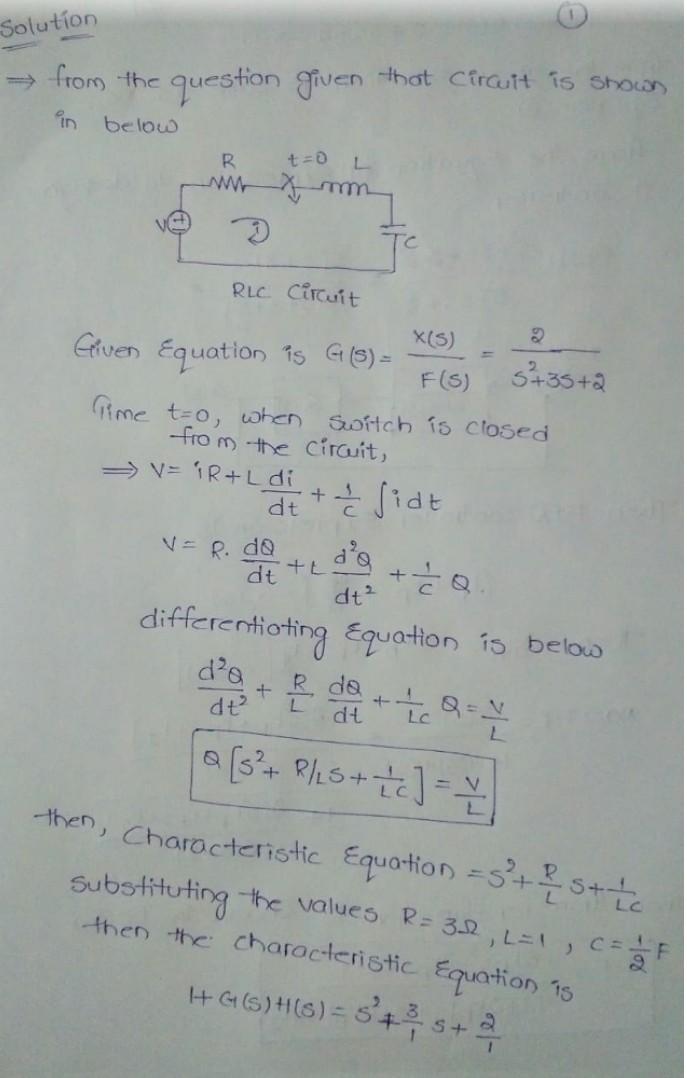 Solution
①
⇒ from the question given that circuit is shown
in below
R t=0 L
V i C
RLC Circuit
Given Equation is G(s) = X(s)/F(s) = 2/(s²+3s+2)
Time t=0, when switch is closed
from the circuit,
⇒ V = iR + L di/dt + 1/C ∫i dt
V = R. dQ/dt + L d²Q/dt² + 1/C Q.
differentiating Equation is below
d²Q/dt² + R/L dQ/dt + 1/LC Q = V/L
Q [s² + R/L s + 1/LC] = V/L
then, Characteristic Equation = s² + R/L s + 1/LC
substituting the values R = 3Ω, L=1, C = 1/2 F
then the characteristic Equation is
1+G(s)H(s) = s² + 3/1 s + 2/1